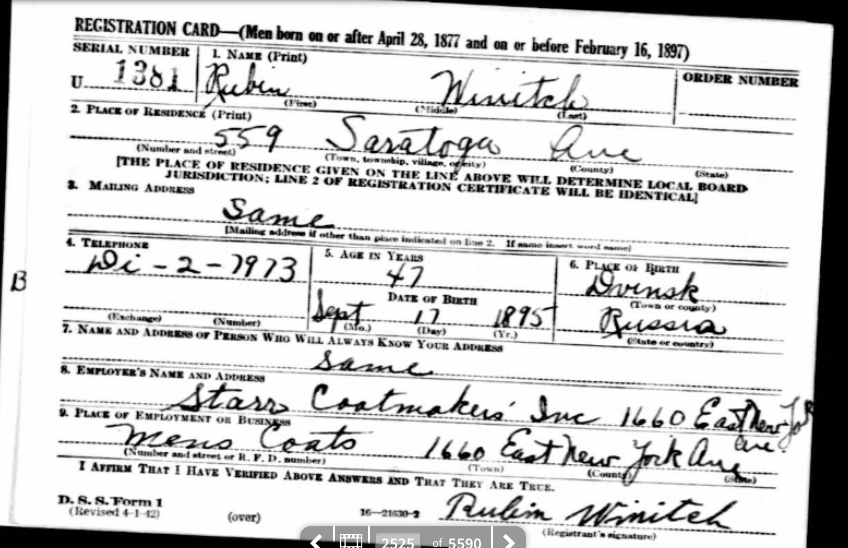 REGISTRATION CARD—(Men born on or after April 28, 1877 and on or before February 16, 1897)
SERIAL NUMBER 1. NAME (Print) ORDER NUMBER
U 1381 Rubin Winitch
(First) (Middle) (Last)
2. PLACE OF RESIDENCE (Print)
559 Saratoga Ave
(Number and street) (Town, township, village, or city) (County) (State)
[THE PLACE OF RESIDENCE GIVEN ON THE LINE ABOVE WILL DETERMINE LOCAL BOARD
JURISDICTION; LINE 2 OF REGISTRATION CERTIFICATE WILL BE IDENTICAL]
3. MAILING ADDRESS
Same
[Mailing address if other than place indicated on line 2. If same insert word same]
4. TELEPHONE 5. AGE IN YEARS 6. PLACE OF BIRTH
Di-2-7973 47 Dvinsk
DATE OF BIRTH (Town or county)
B
Sept 17 1895 Russia
(Exchange) (Number) (Mo.) (Day) (Yr.) (State or country)
7. NAME AND ADDRESS OF PERSON WHO WILL ALWAYS KNOW YOUR ADDRESS
Same
8. EMPLOYER'S NAME AND ADDRESS
Starr Coatmakers' Inc 1660 East New York
Ave.
9. PLACE OF EMPLOYMENT OR BUSINESS
Mens Coats 1660 East New York Ave
(Number and street or R. F. D. number) (Town) (County) (State)
I AFFIRM THAT I HAVE VERIFIED ABOVE ANSWERS AND THAT THEY ARE TRUE.
D. S. S. Form 1
(Revised 4-1-42) (over) 16—21630-2 Rubin Winitch
(Registrant's signature)
2525 of 5590